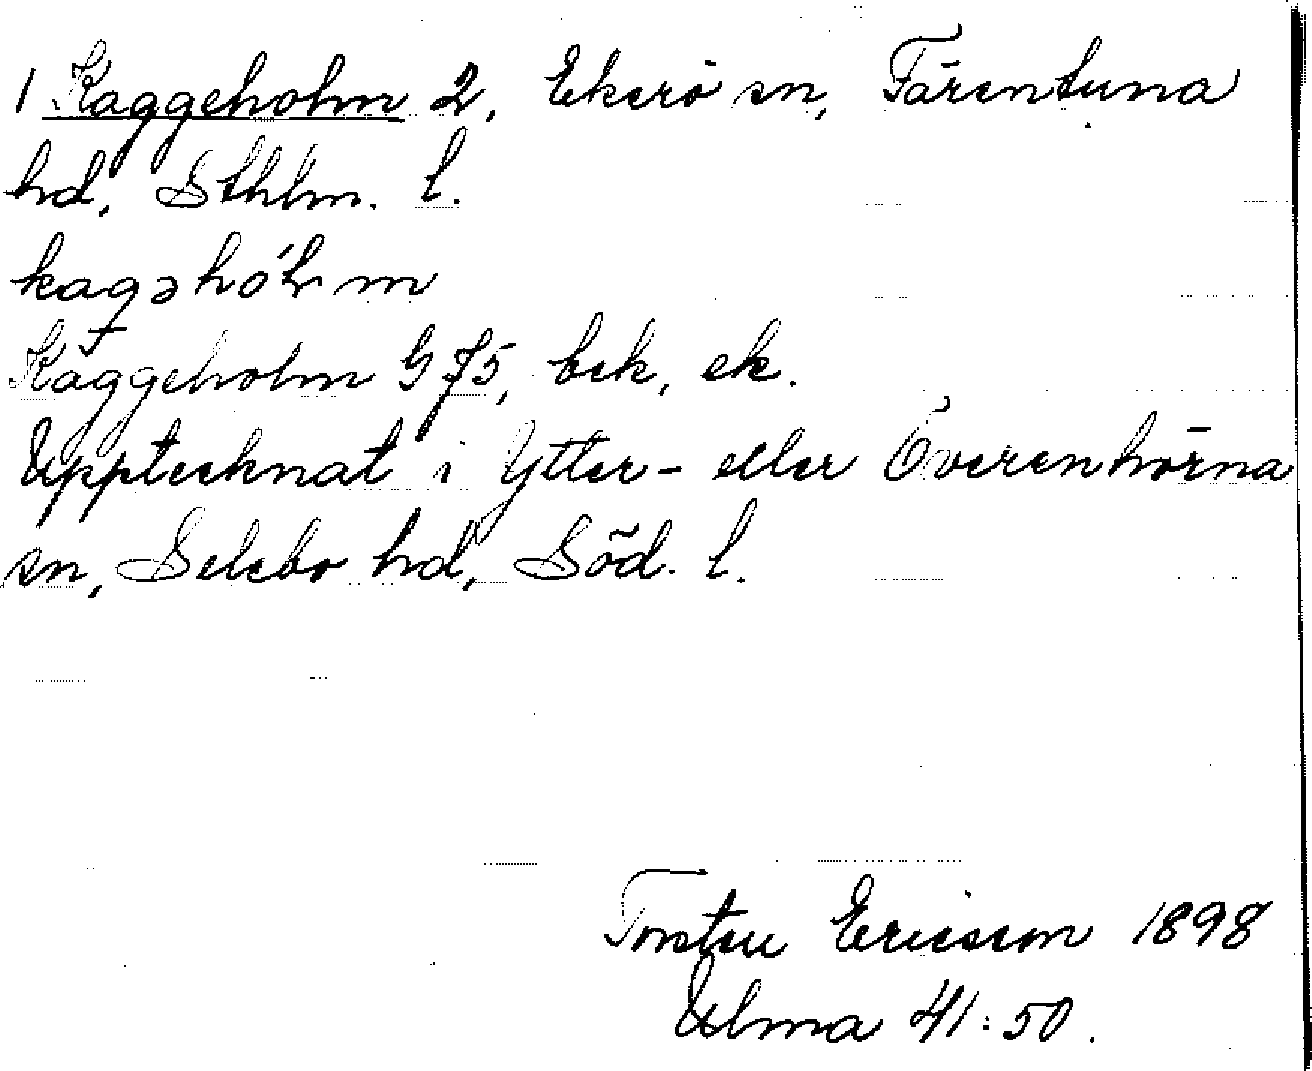 1 Kaggeholm 2, Ekerö sn, Färentuna
hd, Sthlm. l.
kagəhól m
Kaggeholm G 75, bek, ek.
Upptecknat i Ytter- eller Överenhörna
sn, Selebo hd, Söd. l.
Torsten Ericsson 1898
Ulma 41:50.